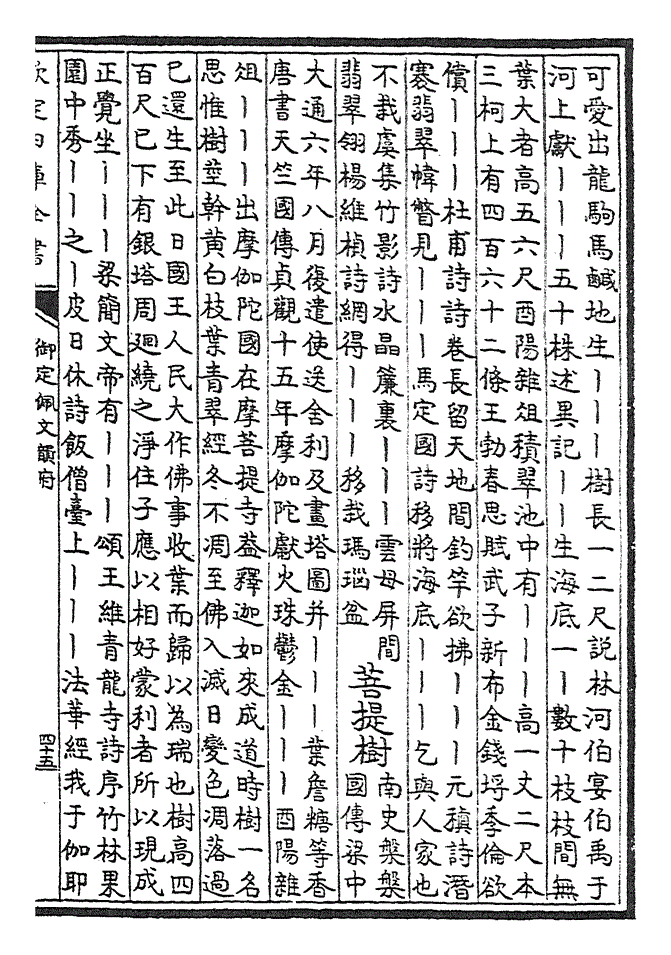 可愛出龍駒馬鹹地生｜｜｜樹長一二尺說林河伯宴伯禹于
河上獻｜｜｜五十株述異記｜｜生海底一｜數十枝枝間無
葉大者高五六尺酉陽雜俎積翠池中有｜｜｜高一丈二尺本
三柯上有四百六十二條王勃春思賦武子新布金錢埒季倫欲
償｜｜｜杜甫詩詩卷長留天地間釣竿欲拂｜｜｜元稹詩潛
褰翡翠幃瞥見｜｜｜馬定國詩移將海底｜｜｜乞與人家也
不栽虞集竹影詩水晶簾裏｜｜｜雲母屏間
翡翠翎楊維楨詩網得｜｜｜移栽瑪瑙盆
菩提樹
南史槃槃
國傳梁中
大通六年八月復遣使送舍利及畫塔圖并｜｜｜葉詹糖等香
唐書天竺國傳貞觀十五年摩伽陀獻火珠鬱金｜｜｜酉陽雜
俎｜｜｜出摩伽陀國在摩菩提寺葢釋迦如來成道時樹一名
思惟樹莖幹黃白枝葉青翠經冬不凋至佛入滅日變色凋落過
已還生至此日國王人民大作佛事收葉而歸以為瑞也樹高四
百尺已下有銀塔周廻繞之淨住子應以相好蒙利者所以現成
正覺坐｜｜｜梁簡文帝有｜｜｜頌王維青龍寺詩序竹林果
園中秀｜｜之｜皮日休詩飯僧臺上｜｜｜法華經我于伽耶
欽定四庫全書
御定佩文韻府
四十五